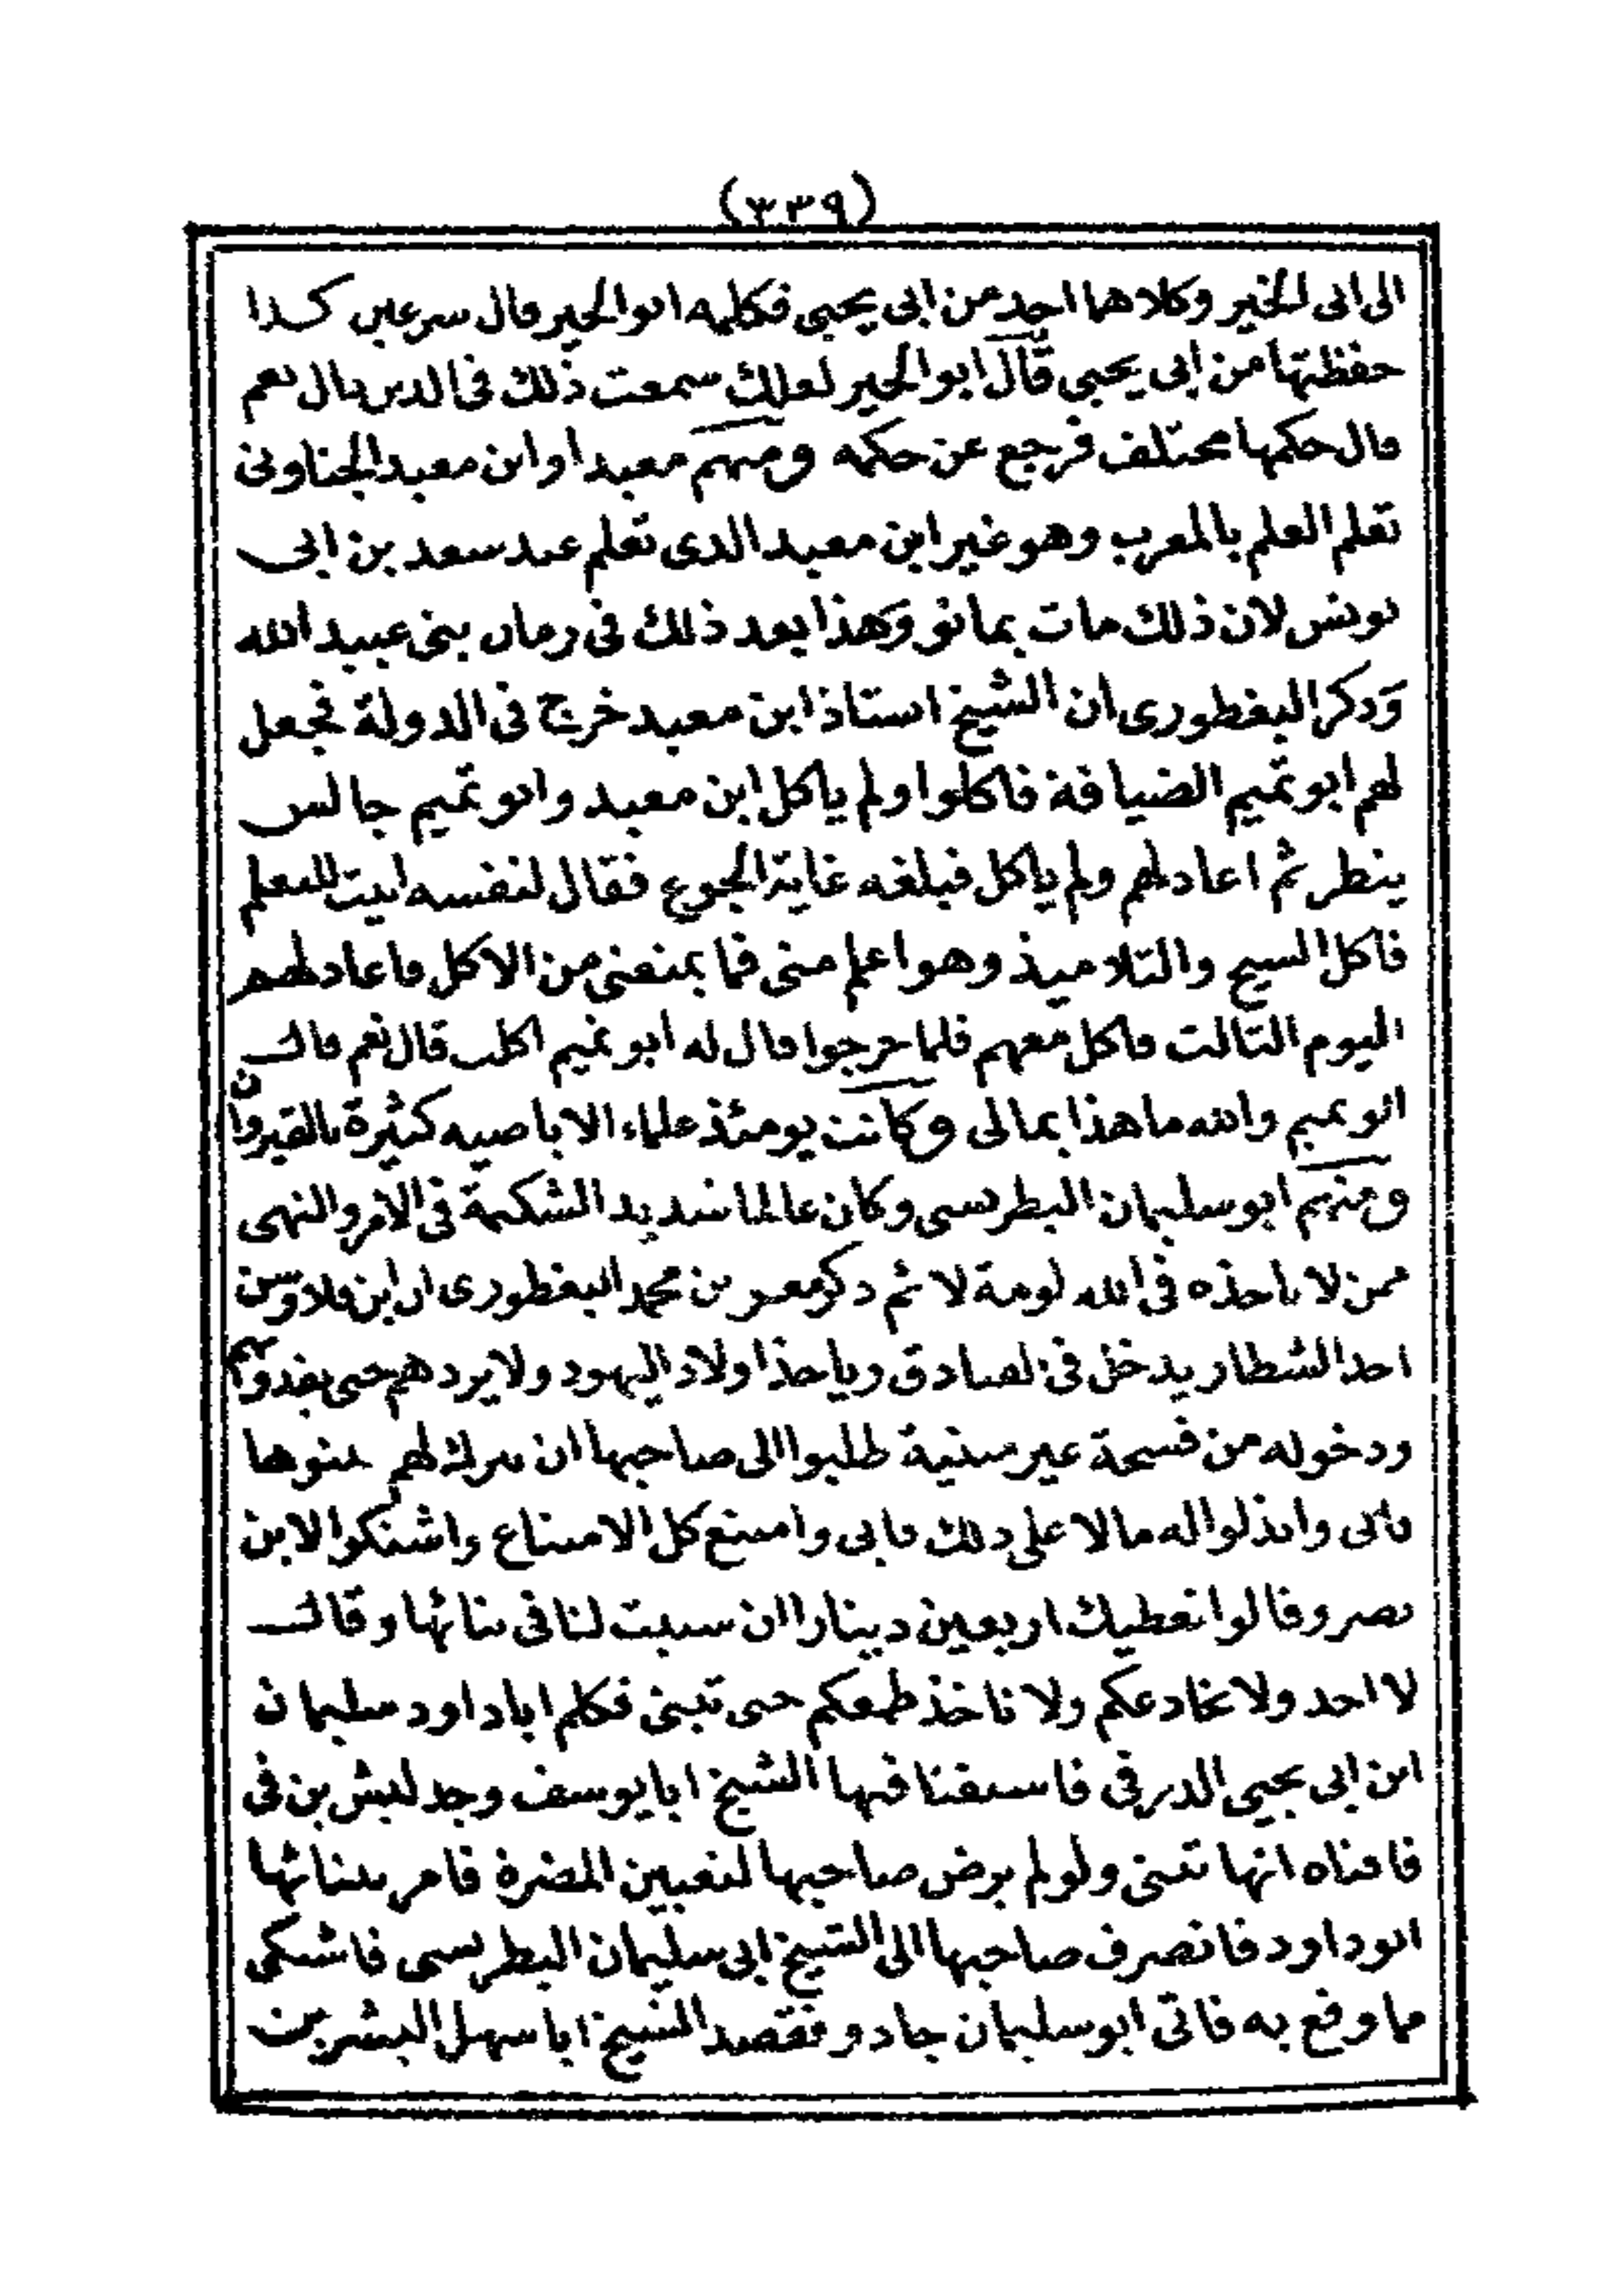 (٣٣٩)
الى ابى الخير وكلاهما اخذ من ابى يحيى فكلمه ابو الخير قال سرعين كذا
حفظتها من ابى يحيى قال ابو الخير لعلك سمعت ذلك فى الدين قال نعم
قال حكمها مختلف فرجع عن حكمه ومنهم معبد او ابن معبد الجناونى
تعلم العلم بالمغرب وهو غير ابن معبد الذى تعلم عند سعد بن ابى
يونس لان ذلك مات بمانو وهذا بعد ذلك فى زمان بنى عبيد الله
وذكر البغطورى ان الشيخ استاذ ابن معبد خرج فى الدولة فجعل
لهم ابو تميم الضيافة فاكلوا ولم ياكل ابن معبد وابو تميم جالس
ينظر ثم اعاد لهم ولم ياكل فبلغه غاية الجوع فقال لنفسه ليت للمعلم
فاكل الشيخ والتلاميذ وهو اعلم منى فما يمنعنى من الاكل فاعاد لهم
اليوم الثالث فاكل معهم فلما خرجوا قال له ابو تميم اكلت قال نعم قال
ابو تميم والله ما هذا بمالى وكانت يومئذ علماء الاباضيه كثيرة بالقيروان
ومنهم ابو سليمان البطرسى وكان عالما شديد الشكيمة فى الامر والنهى
ممن لا ياخذه فى الله لومة لائم ذكر معمر بن محمد البغطورى ان ابن فلاوسن
احد الشطار يدخل فى الصادق وياخذ اولاد اليهود ولا يردهم حتى يفدوهم
ودخوله من فسحة غير مبنية طلبوا الى صاحبها ان يترك لهم يبنوها
فابى وابذلوا له مالا على ذلك فابى وامتنع كل الامتناع واشتكوا لابن
نصر وقالوا نعطيك اربعين دينارا ان سببت لنا فى بنائها وقال
لا احد ولا نخادعكم ولا ناخذ طمعكم حتى تبنى فكلم ابا داود سليمان
ابن ابى يحيى الدرفى فاستفتا فيها الشيخ ابا يوسف وجدليش بن فى
فافتاه انها تبنى ولو لم يرض صاحبها لتعيين المضرة فامر ببنائها
ابو داود فانصرف صاحبها الى الشيخ ابى سليمان البطرسى فاشتكى
مما وقع به فاتى ابو سليمان جادو فقصد الشيخ ابا سهل البشر بن